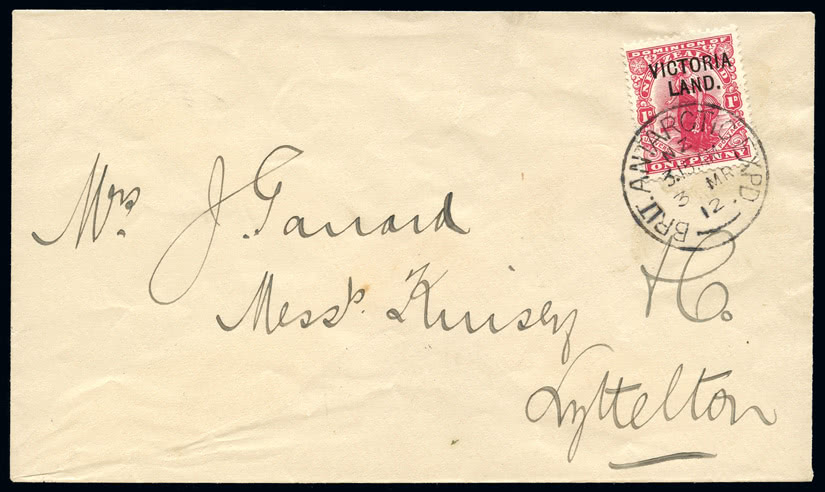 DOMINION OF
NEW ZEALAND
VICTORIA
LAND.
1D 1D
ONE PENNY
BRIT. ANTARCTIC EXPD.
N.Z.
3 MR
12.
Mrs J. Garrard
Messrs Kinsey & Co.
Lyttelton